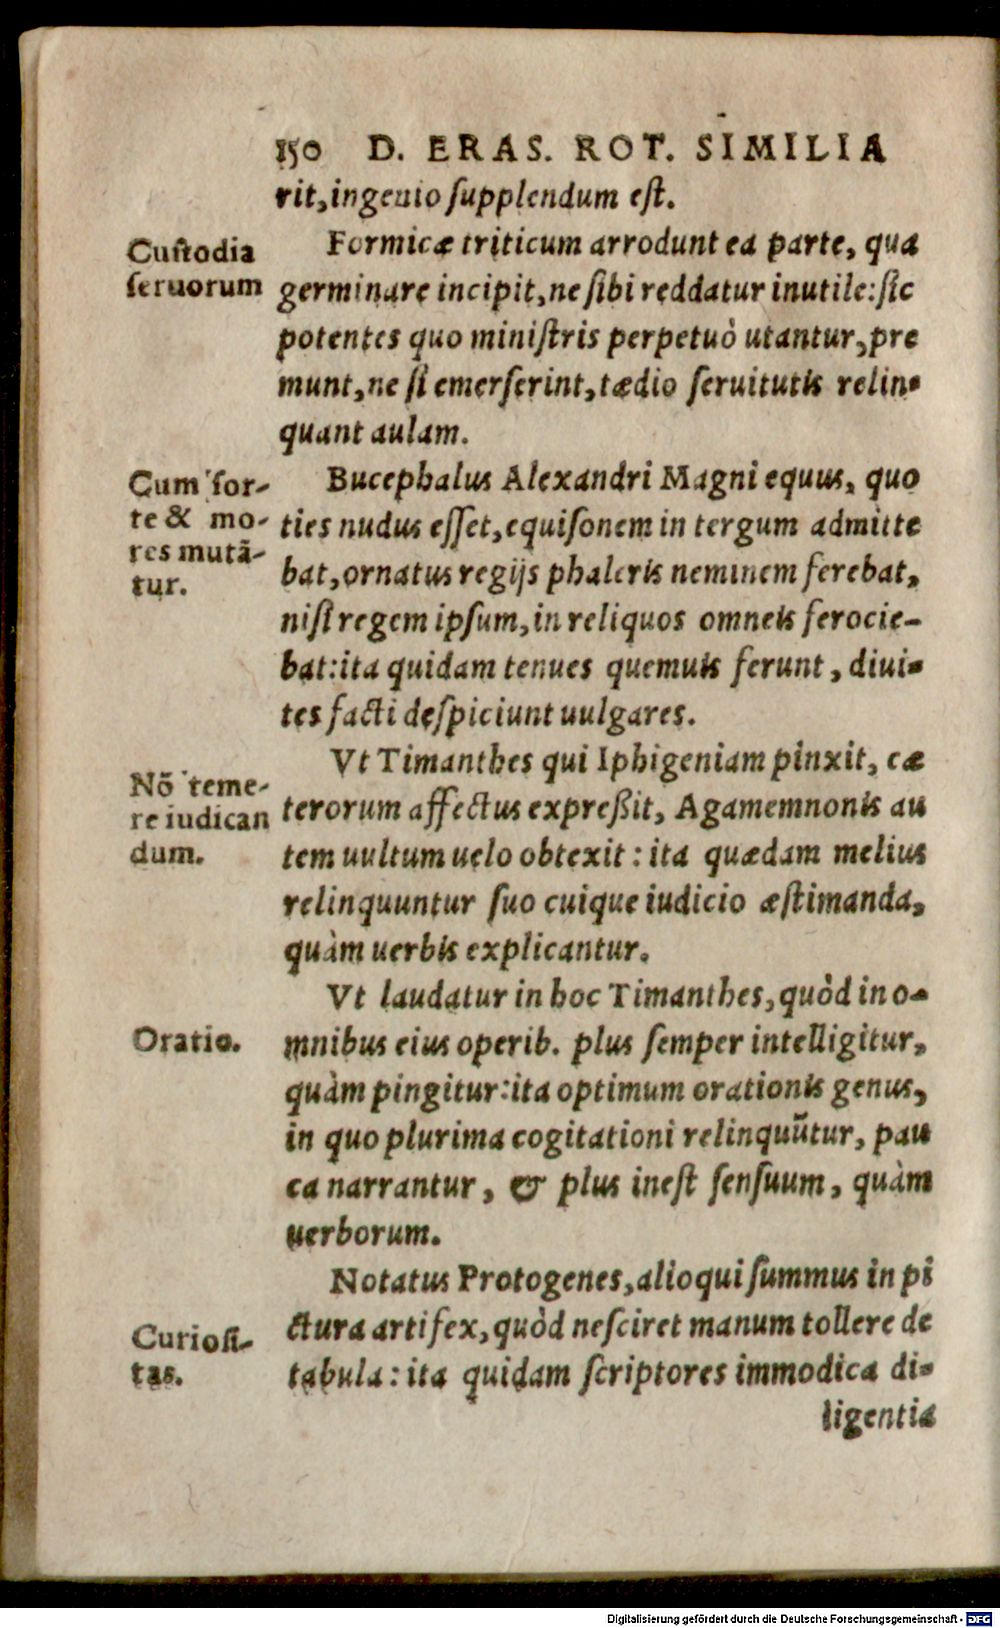 150 D. ERAS. ROT. SIMILIA
rit, ingenio ſupplendum eſt.
Custodia
ſeruorum
Formicæ triticum arrodunt ea parte, qua
germinare incipit, ne ſibi reddatur inutile: ſic
potentes quo miniſtris perpetuò utantur, pre
munt, ne ſi emerſerint, tædio ſeruitutis relin-
quant aulam.
Cum ſor-
te & mo-
res mutã-
tur.
Bucephalus Alexandri Magni equus, quo
ties nudus eſſet, equiſonem in tergum admitte
bat, ornatus regijs phaleris neminem ferebat,
niſi regem ipſum, in reliquos omneis ferocie-
bat: ita quidam tenues quemuis ferunt, diui-
tes facti deſpiciunt uulgares.
Nõ teme-
re iudican
dum.
Vt Timanthes qui Iphigeniam pinxit, cæ
terorum affectus expreßit, Agamemnonis au
tem uultum uelo obtexit: ita quædam melius
relinquuntur ſuo cuique iudicio æſtimanda,
quàm uerbis explicantur.
Oratio.
Vt laudatur in hoc Timanthes, quòd in o-
mnibus eius operib. plus ſemper intelligitur,
quàm pingitur: ita optimum orationis genus,
in quo plurima cogitationi relinquũtur, pau
ca narrantur, & plus ineſt ſenſuum, quàm
uerborum.
Curioſi-
tas.
Notatus Protogenes, alioqui ſummus in pi
ctura artifex, quòd neſciret manum tollere de
tabula: ita quidam ſcriptores immodica di-
ligentia
Digitalisierung gefördert durch die Deutsche Forschungsgemeinschaft - DFG